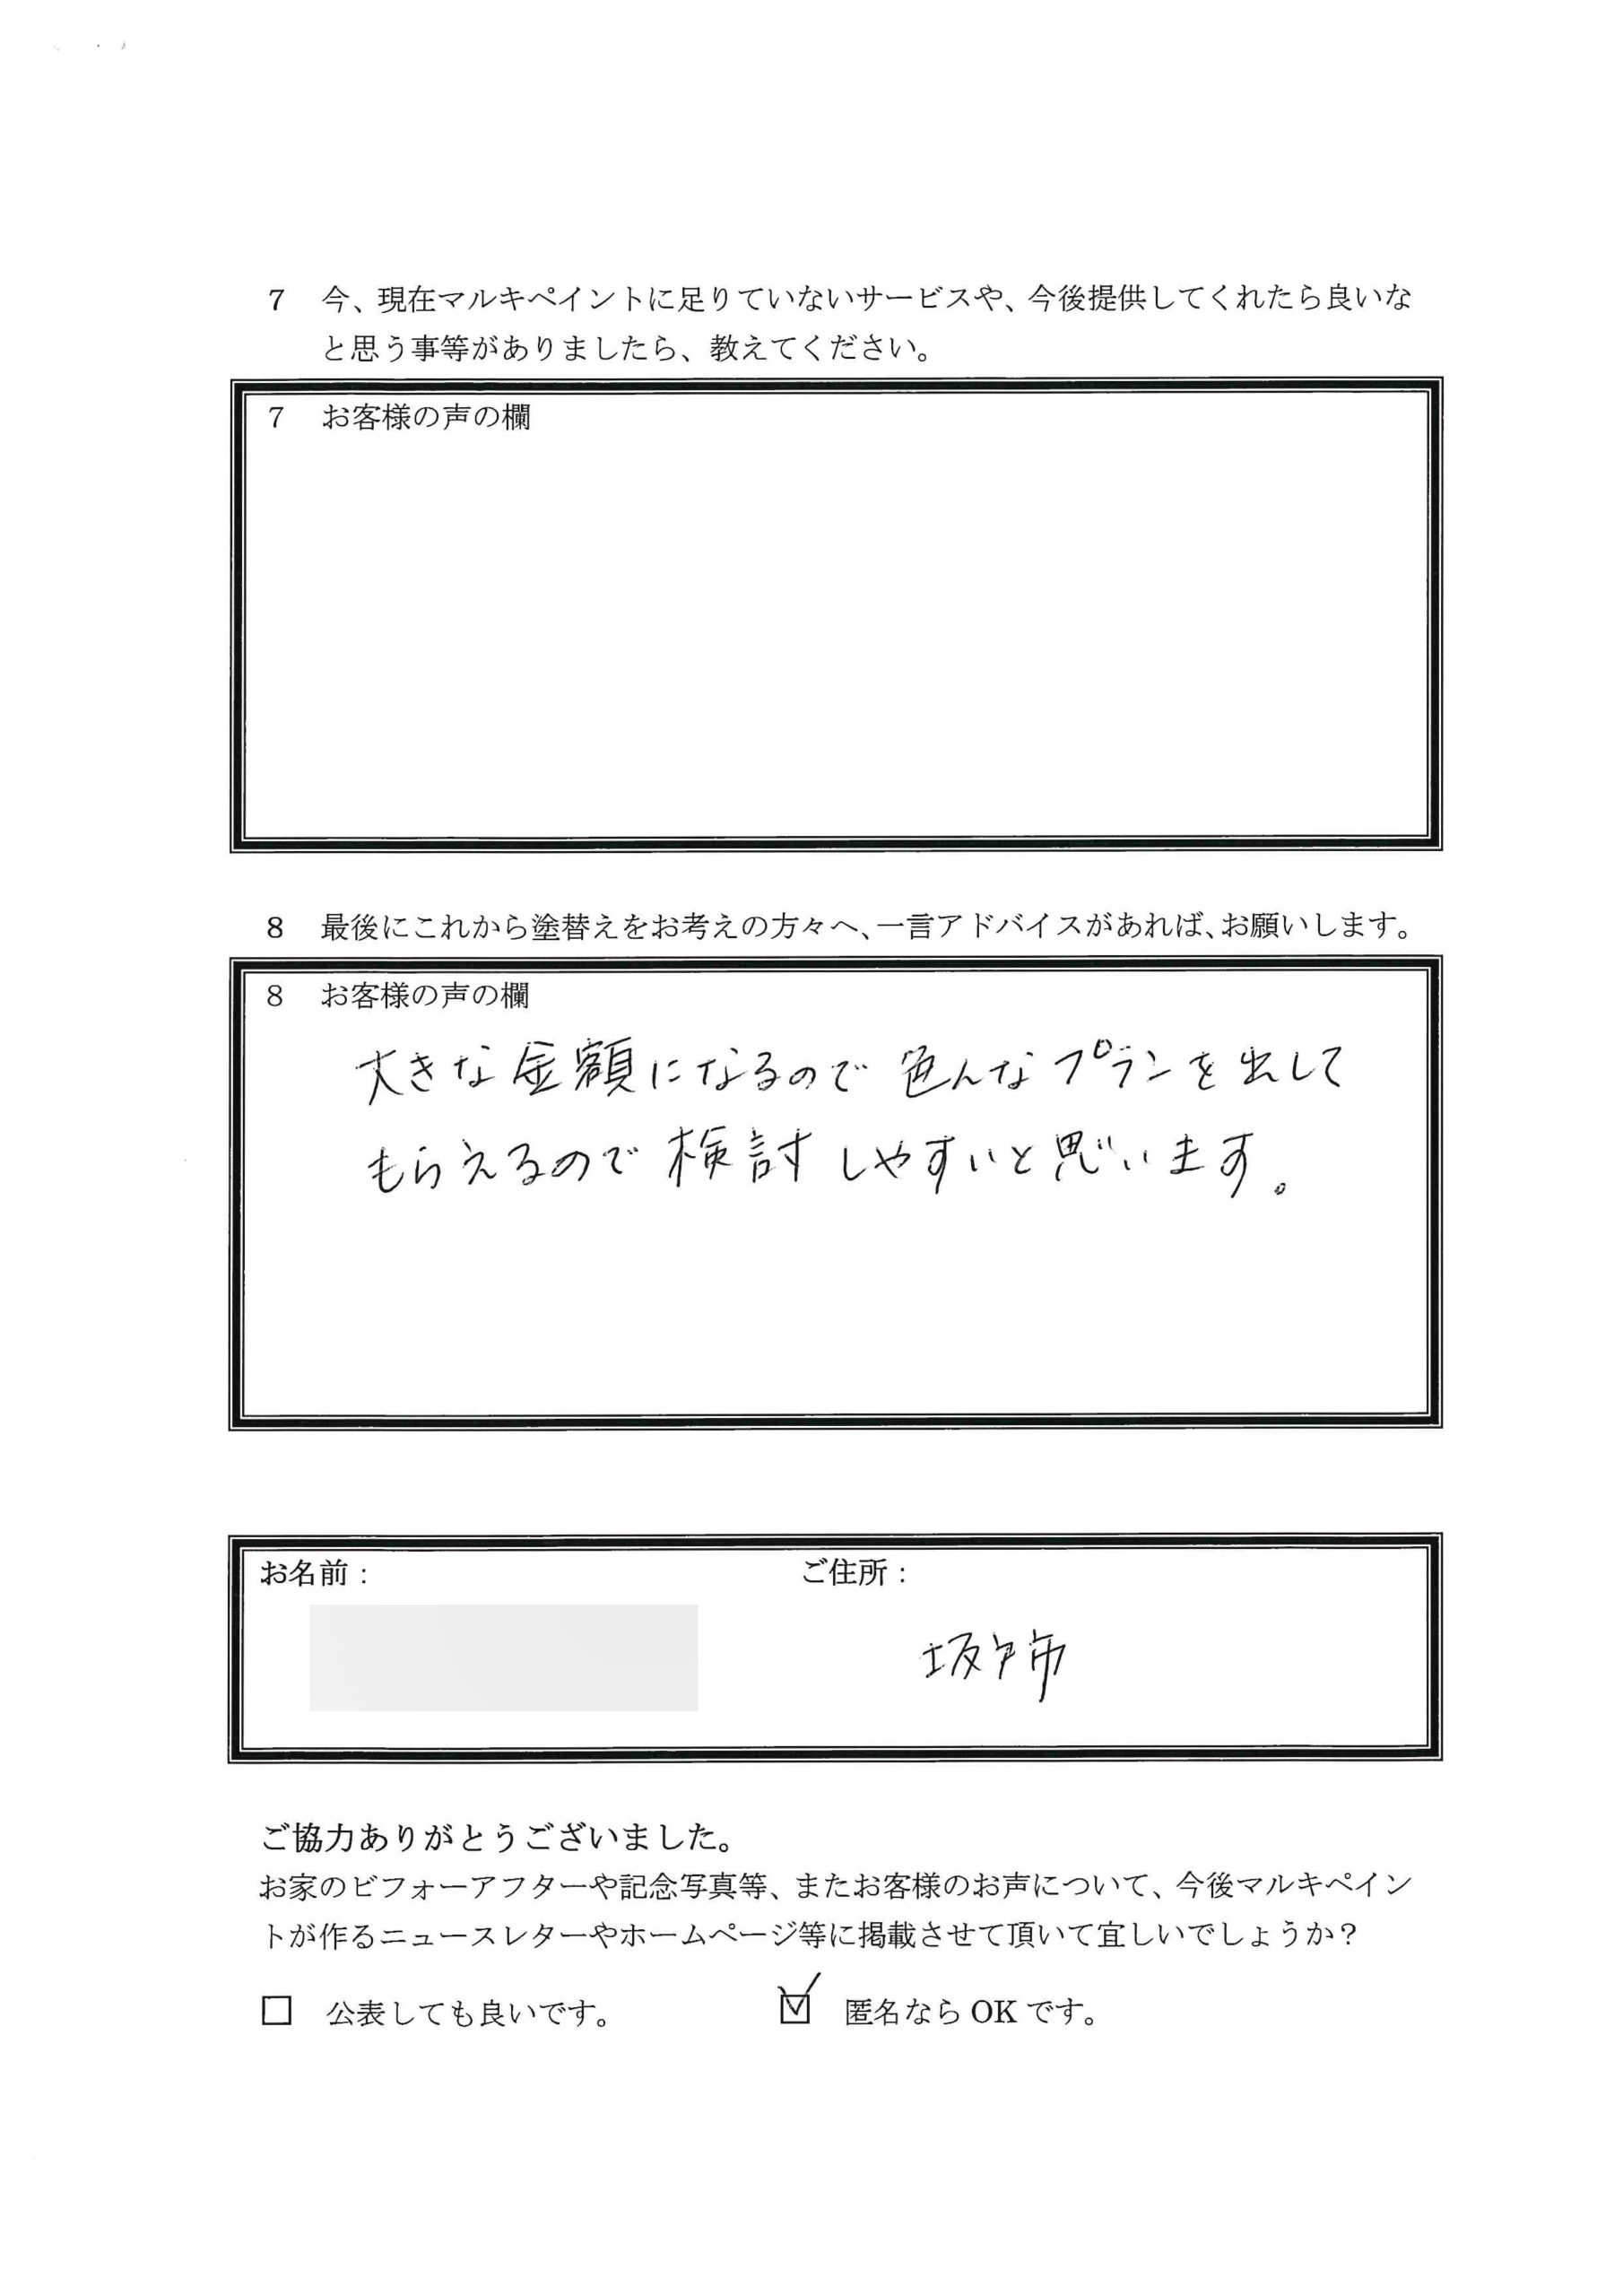 7 今、現在マルキペイントに足りていないサービスや、今後提供してくれたら良いな
と思う事等がありましたら、教えてください。
7 お客様の声の欄
8 最後にこれから塗替えをお考えの方々へ、一言アドバイスがあれば、お願いします。
8 お客様の声の欄
大きな金額になるので色んなプランを出して
もらえるので検討しやすいと思います。
お名前： ご住所：
坂戸市
ご協力ありがとうございました。
お家のビフォーアフターや記念写真等、またお客様のお声について、今後マルキペイン
トが作るニュースレターやホームページ等に掲載させて頂いて宜しいでしょうか？
□ 公表しても良いです。 ☑ 匿名なら OK です。